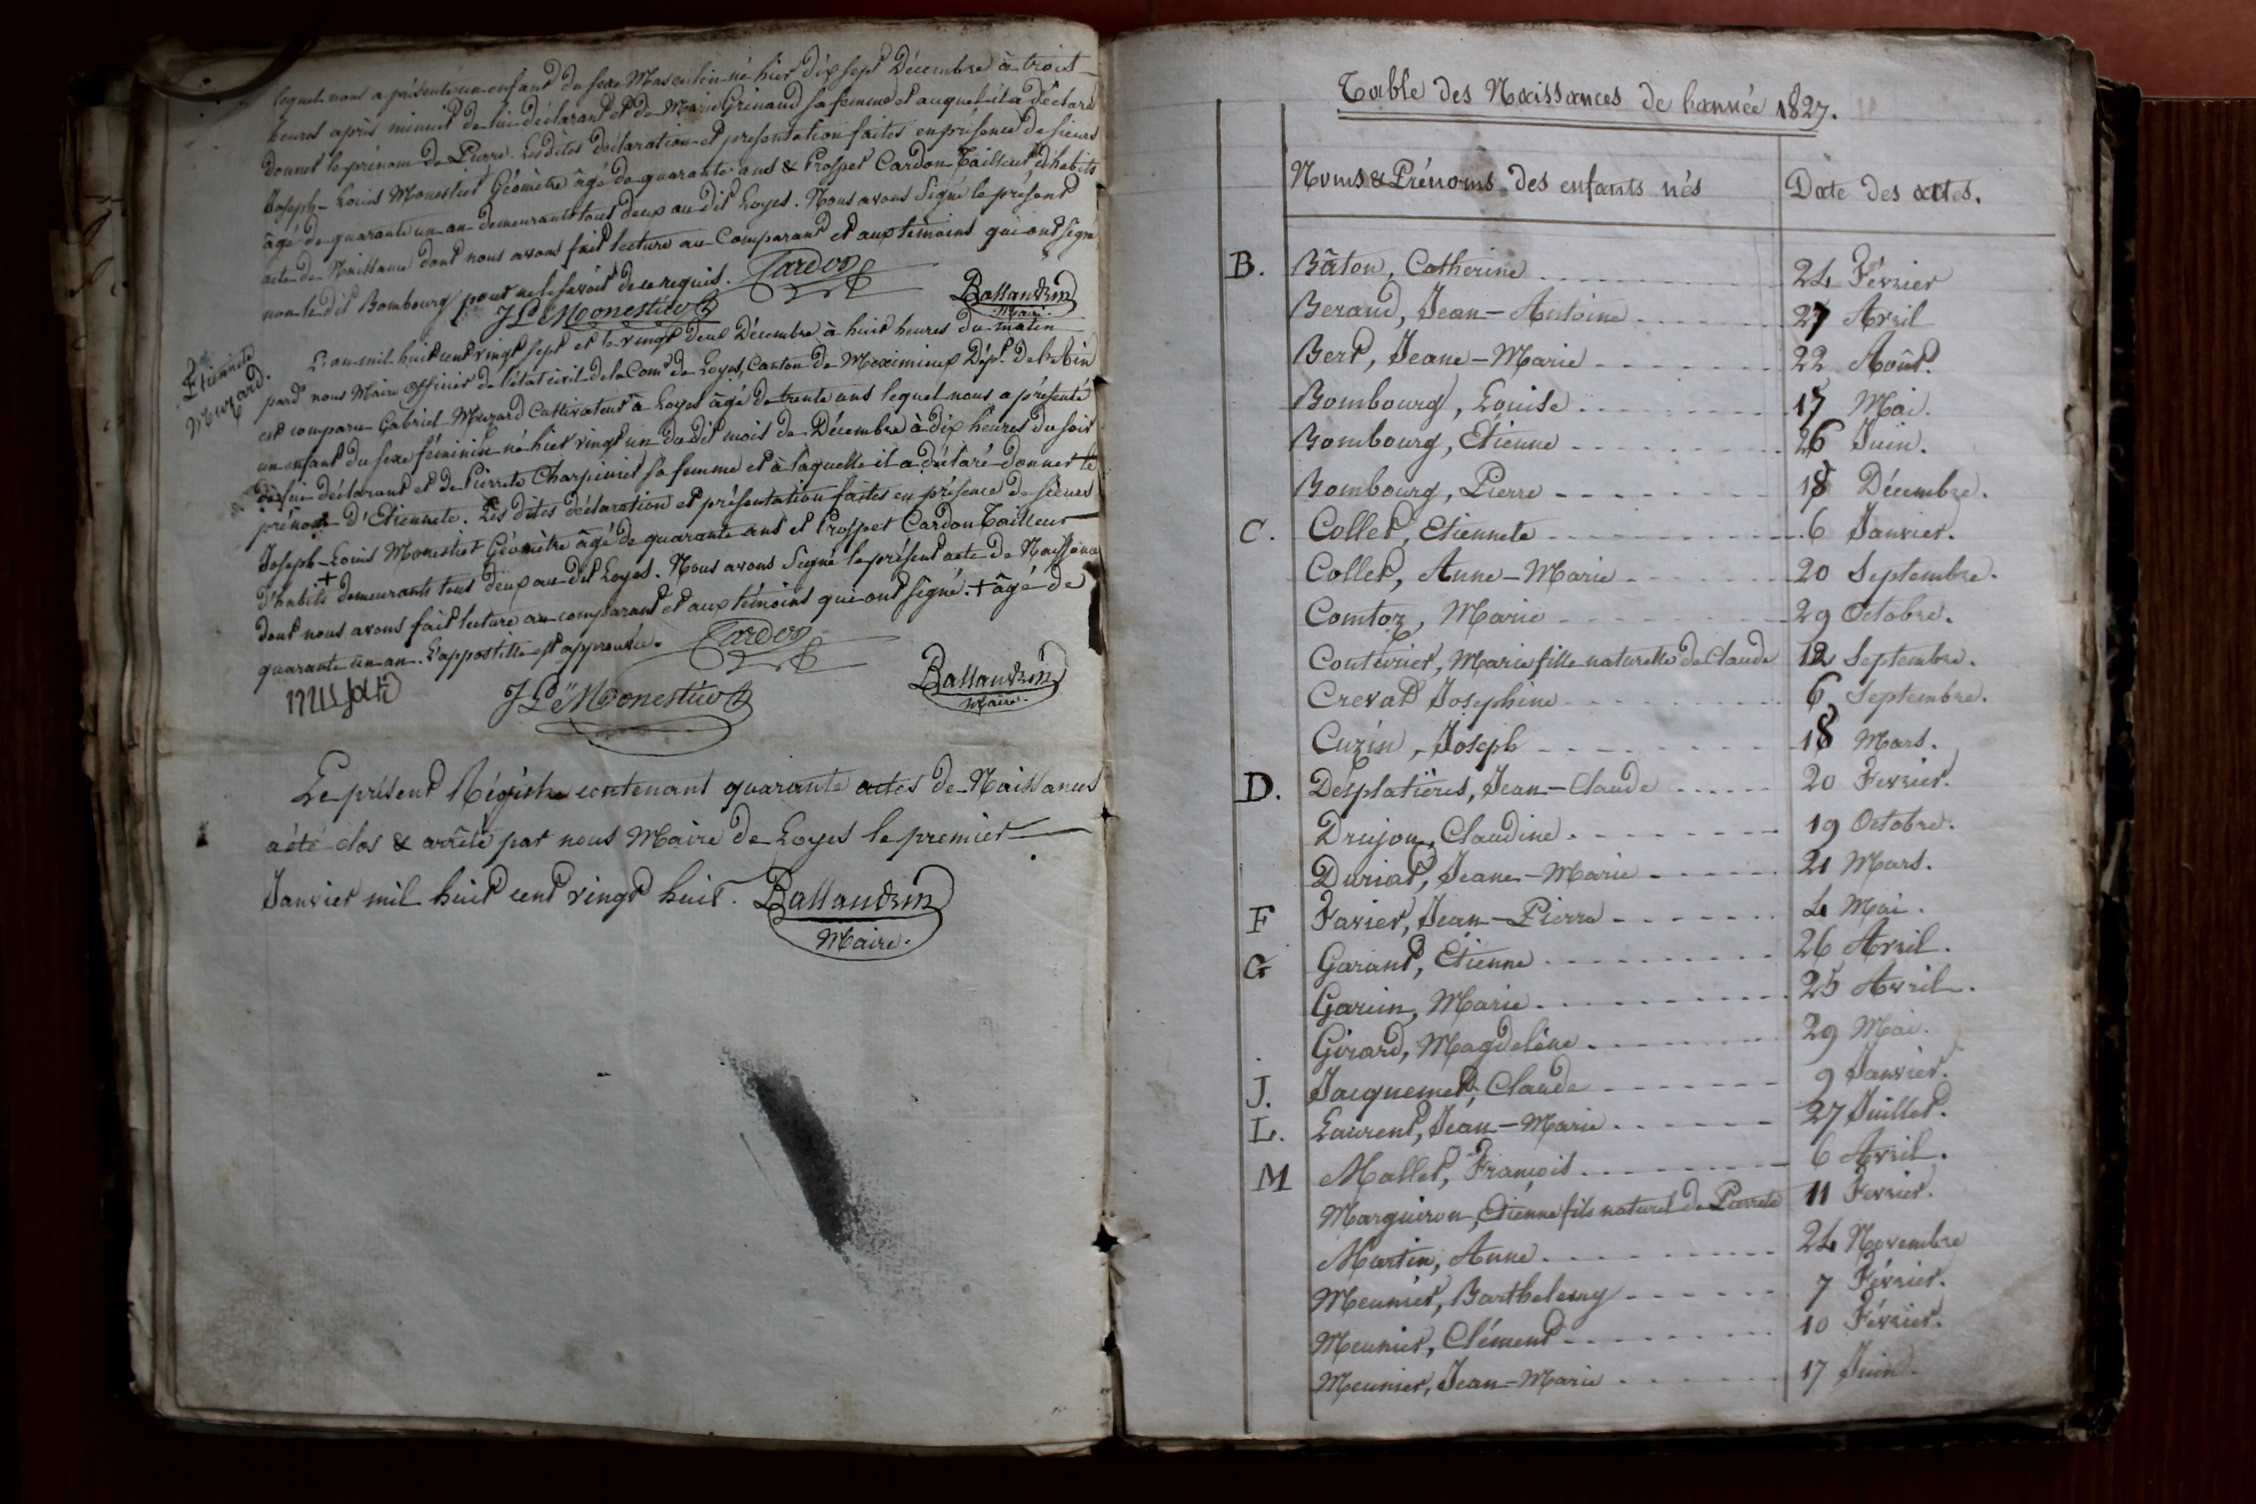 lequel nous a présenté un enfant du sexe Masculin né hier dix sept Décembre à trois
heures après minuit de lui déclarant et de Marie Grinand sa femme et auquel il a déclaré
donner le prénom de Pierre. Les dites déclaration et présentation faites en présence de sieurs
Joseph-Louis Monestier Géomètre âgé de quarante ans & Prosper Cardon Tailleur d'habits
âgé de quarante un an demeurants tous deux au dit Loyes. Nous avons Signé le présent
acte de Naissance dont nous avons fait lecture au Comparant et aux témoins qui ont signé
non le dit Bombourg pour ne le savoir de ce requis. Cardon
JL Monestier Ballandrin
Maire.
Etiennete
Murard.
L'an mil huit cent vingt sept et le vingt deux Décembre à huit heures du matin
pard nous Maire officier de l'état civil de la Com.e de Loyes, Canton de Meximieux Dép.t de l'Ain
est comparu Gabriel Murard Cultivateur à Loyes âgé de trente ans lequel nous a présenté
un enfant du sexe féminin né hier vingt un du dit mois de Décembre à dix heures du soir
de lui déclarant et de Pierrete Charpinet sa femme et à laquelle il a déclaré donner le
prénom d'Etiennete. Les dites déclaration et présentation faites en présence de sieurs
Joseph-Louis Monestier Géomètre âgé de quarante ans et Prosper Cardon Tailleur
d'habits + demeurants tous deux au dit Loyes. Nous avons Signé le présent acte de Naissance
dont nous avons fait lecture au comparant et aux témoins qui ont signé. + âgé de
quarante un an. L'appostille est approuvée. Cardon
JL Monestier Ballandrin
Maire.
Le présent Régistre contenant quarante actes de Naissances
a été clos & arrêté par nous Maire de Loyes le premier
Janvier mil huit cent vingt huit. Ballandrin
Maire.
Table des Naissances de l'année 1827.
Noms & Prénoms des enfants nés Date des actes.
B. Bâton, Catherine 24 Février
Beraud, Jean-Antoine 27 Avril
Bert, Jeane-Marie 22 Août.
Bombourg, Louise 17 Mai.
Bombourg, Etienne 26 Juin.
Bombourg, Pierre 18 Décembre.
C. Collet, Etiennete 6 Janvier.
Collet, Anne-Marie 20 Septembre.
Comtoz, Marie 29 Octobre.
Couturier, Marie fille naturelle de Claude 12 Septembre.
Crevat Josephine 6 Septembre.
Cuzin, Joseph 18 Mars.
D. Désplatières, Jean-Claude 20 Fevrier.
Drujon, Claudine 19 Octobre.
Duriat, Jeane-Marie 21 Mars.
F Favier, Jean-Pierre 4 Mai.
G Garant, Etienne 26 Avril.
Garin, Marie 25 Avril.
Girard, Magdeléne 29 Mai.
J. Jacquemet, Claude 9 Janvier.
L. Laurent, Jean-Marie 27 Juillet.
M Mallet, François 6 Avril.
Marguiron, Etienne fils naturel de Pierrete 11 Fevrier.
Martin, Anne 24 Novembre
Meunier, Barthelemy 7 Février.
Meunier, Clément 10 Février.
Meunier, Jean-Marie 17 Juin.